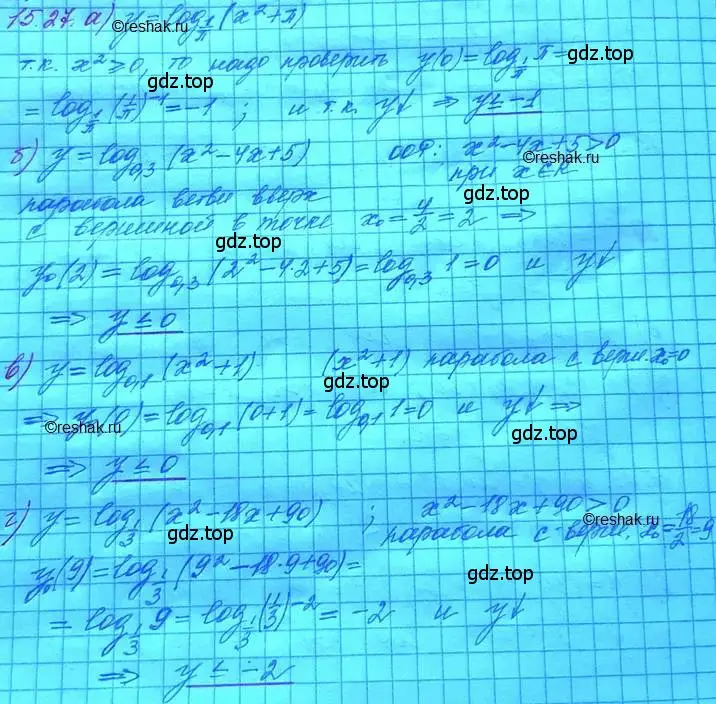 15.27. а) y = log_{1/π} (x² + π)
©reshak.ru
т.к. x² ≥ 0, то надо проверить y(0) = log_{1/π} π =
gdz.top gdz.top
= log_{1/π} (1/π)^{-1} = -1 ; и т.к. y↓ ⇒ y ≤ -1
б) y = log_{0,3} (x² - 4x + 5) ООФ: x² - 4x + 5 > 0
©reshak.ru
парабола ветви вверх при x ∈ R
gdz.top
с вершиной в точке x₀ = 4/2 = 2 ⇒
gdz.top
y₀(2) = log_{0,3} (2² - 4·2 + 5) = log_{0,3} 1 = 0 и y↓
⇒ y ≤ 0
©reshak.ru
в) y = log_{0,1} (x² + 1) (x² + 1) парабола с верш. x₀ = 0
gdz.top
⇒ y₀(0) = log_{0,1} (0 + 1) = log_{0,1} 1 = 0 и y↓ ⇒
©reshak.ru
gdz.top
⇒ y ≤ 0
г) y = log_{1/3} (x² - 18x + 90) ; x² - 18x + 90 > 0
©reshak.ru
gdz.top
парабола с верш. x₀ = 18/2 = 9
y₀(9) = log_{1/3} (9² - 18·9 + 90) =
gdz.top
= log_{1/3} 9 = log_{1/3} (1/3)^{-2} = -2 и y↓
gdz.top
⇒ y ≤ -2